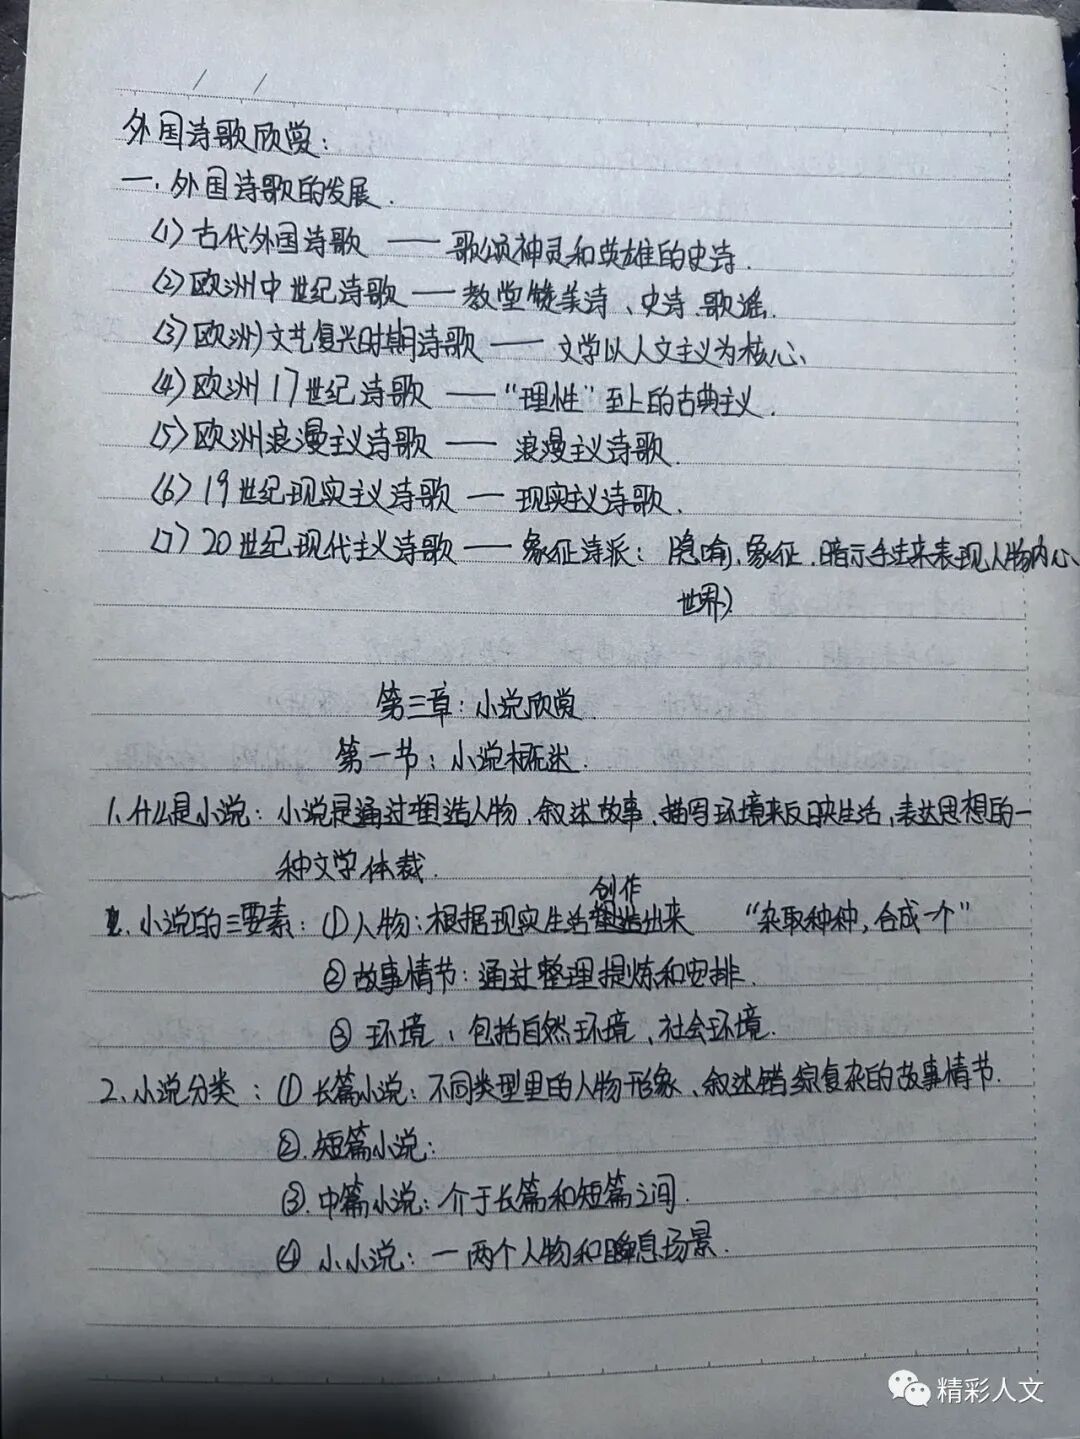 外国诗歌欣赏：
一. 外国诗歌的发展.
(1) 古代外国诗歌 —— 歌颂神灵和英雄的史诗.
(2) 欧洲中世纪诗歌 —— 教堂赞美诗、史诗.歌谣.
(3) 欧洲文艺复兴时期诗歌 —— 文学以人文主义为核心、
(4) 欧洲17世纪诗歌 —— “理性”至上的古典主义.
(5) 欧洲浪漫主义诗歌 —— 浪漫主义诗歌.
(6) 19世纪现实主义诗歌 — 现实主义诗歌.
(7) 20世纪现代主义诗歌 —— 象征诗派：隐喻、象征.暗示手法来表现人物内心
世界)
第三章：小说欣赏.
第一节：小说概述.
1.什么是小说：小说是通过塑造人物、叙述故事、描写环境来反映生活,表达思想的一
种文学体裁.
创作
2. 小说的三要素：①人物：根据现实生活塑造出来 “杂取种种,合成一个”
② 故事情节：通过整理提炼和安排.
③ 环境：包括自然环境、社会环境.
2.小说分类：① 长篇小说：不同类型里的人物形象、叙述错综复杂的故事情节.
②.短篇小说：
③.中篇小说：介于长篇和短篇之间.
④ 小小说：一两个人物和瞬息场景.
精彩人文